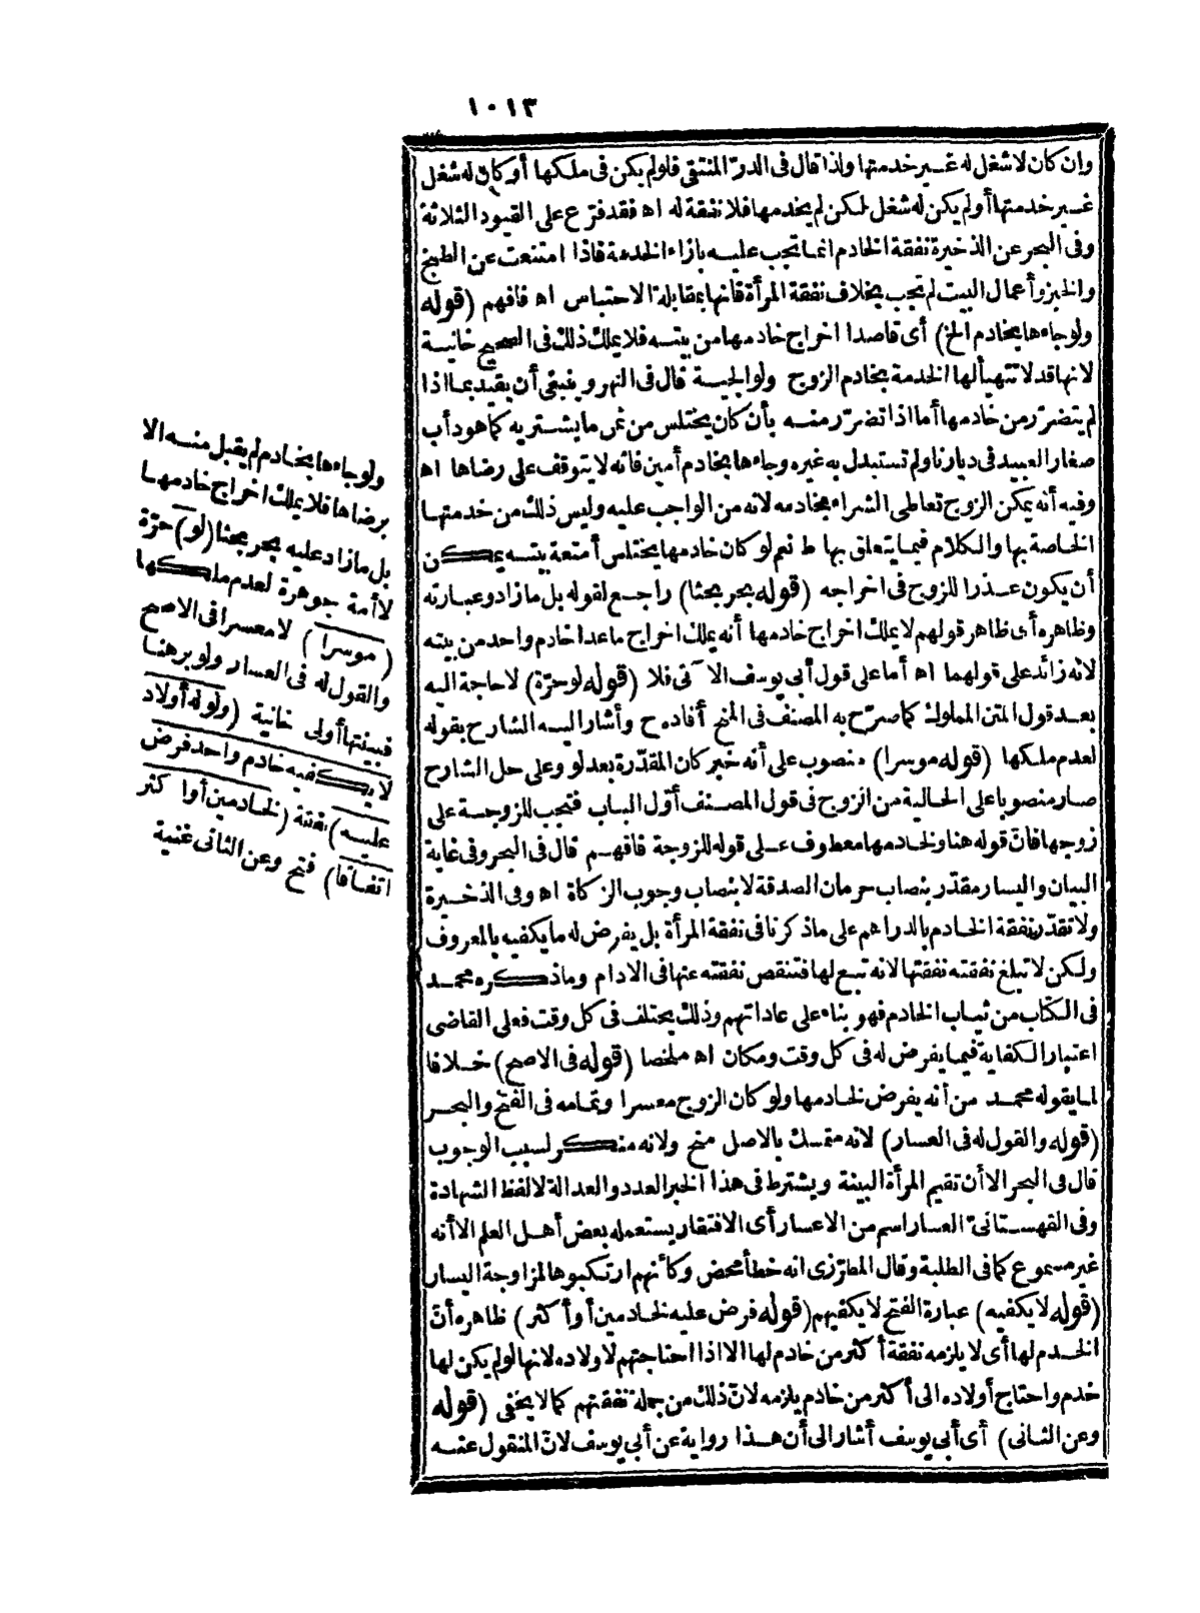 ١٠١٣
وان كان لا شغل له غير خدمتها ولذا قال فى الدرّ المنتقى فلو لم يكن فى ملكها أو كان له شغل
غير خدمتها أو لم يكن له شغل لكن لم يخدمها فلا نفقة له اه فقد فرّع على القيود الثلاثة
وفى البحر عن الذخيرة نفقة الخادم انما تجب عليه بازاء الخدمة فاذا امتنعت عن الطبخ
والخبز وأعمال البيت لم تجب بخلاف نفقة المرأة فانها بمقابلة الاحتباس اه فافهم (قوله
ولو جاءها بخادم الخ) أى قاصدا اخراج خادمها من بيته فلا يملك ذلك فى الصحيح خانية
لانها قد لا تتهيأ لها الخدمة بخادم الزوج ولوالجية قال فى النهر وينبغى أن يقيد بما اذا
لم يتضرّر من خادمها أما اذا تضرّر منه بأن كان يختلس من ثمن ما يشتريه كما هو دأب
صغار العبيد فى ديارنا ولم تستبدل به غيره وجاءها بخادم أمين فانه لا يتوقف على رضاها اه
وفيه أنه يمكن الزوج تعاطى الشراء بخادمه لانه من الواجب عليه وليس ذلك من خدمتها
الخاصة بها والكلام فيما يتعلق بها ط نعم لو كان خادمها يختلس أمتعة بيته يمكن
أن يكون عذرا للزوج فى اخراجه (قوله بحر بحثا) راجع لقوله بل ما زاد وعبارته
وظاهره أى ظاهر قولهم لا يملك اخراج خادمها أنه يملك اخراج ما عدا خادم واحد من بيته
لانه زائد على قولهما اه أما على قول أبى يوسف الآتى فلا (قوله لو حرّة) لا حاجة اليه
بعد قول المتن المملوك كما صرّح به المصنف فى المنح أفاده ح وأشار اليه الشارح بقوله
لعدم ملكها (قوله موسرا) منصوب على أنه خبر كان المقدّرة بعد لو وعلى حل الشارح
صار منصوبا على الحالية من الزوج فى قول المصنف أوّل الباب فتجب للزوجة على
زوجها فانّ قوله هنا ولخادمها معطوف على قوله للزوجة فافهم قال فى البحر وفى غاية
البيان واليسار مقدّر بنصاب حرمان الصدقة لا بنصاب وجوب الزكاة اه وفى الذخيرة
ولا تقدّر نفقة الخادم بالدراهم على ما ذكرنا فى نفقة المرأة بل يفرض له ما يكفيه بالمعروف
ولكن لا تبلغ نفقته نفقتها لانه تبع لها فتنقص نفقته عنها فى الادام وما ذكره محمد
فى الكتاب من ثياب الخادم فهو بناء على عاداتهم وذلك يختلف فى كل وقت فعلى القاضى
اعتبار الكفاية فيما يفرض له فى كل وقت ومكان اه ملخصا (قوله فى الاصح) خلافا
لما يقوله محمد من أنه يفرض لخادمها ولو كان الزوج معسرا وتمامه فى الفتح والبحر
(قوله والقول له فى العسار) لانه متمسك بالاصل منح ولانه منكر لسبب الوجوب
قال فى البحر الا أن تقيم المرأة البينة ويشترط فى هذا الخبر العدد والعدالة لا لفظ الشهادة
وفى القهستانىّ العسار اسم من الاعسار أى الافتقار يستعمله بعض أهل العلم الا أنه
غير مسموع كما فى الطلبة وقال المطرّزى انه خطأ محض وكأنهم ارتكبوها لمزاوجة اليسار
(قوله لا يكفيه) عبارة الفتح لا يكفيهم (قوله فرض عليه لخادمين أو أكثر) ظاهره أنّ
الخدم لها أى لا يلزمه نفقة أكثر من خادم لها الا اذا احتاجتهم لاولاده لانها لو لم يكن لها
خدم واحتاج أولاده الى أكثر من خادم يلزمه لانّ ذلك من جملة نفقتهم كما لا يخفى (قوله
وعن الثانى) أى أبى يوسف أشار الى أن هذا رواية عن أبى يوسف لانّ المنقول عنه
ولو جاءها بخادم لم يقبل منه الا
برضاها فلا يملك اخراج خادمها
بل ما زاد عليه بحر بحثا (لو) حرّة
لا أمة جوهرة لعدم ملكها
(موسرا) لا معسرا فى الاصح
والقول له فى العسار ولو برهنا
فبينتها أولى خانية (ولو له أولاد
لا يكفيه خادم واحد فرض
عليه) نفقة (لخادمين أو اكثر
اتفاقا) فتح وعن الثانى غنية